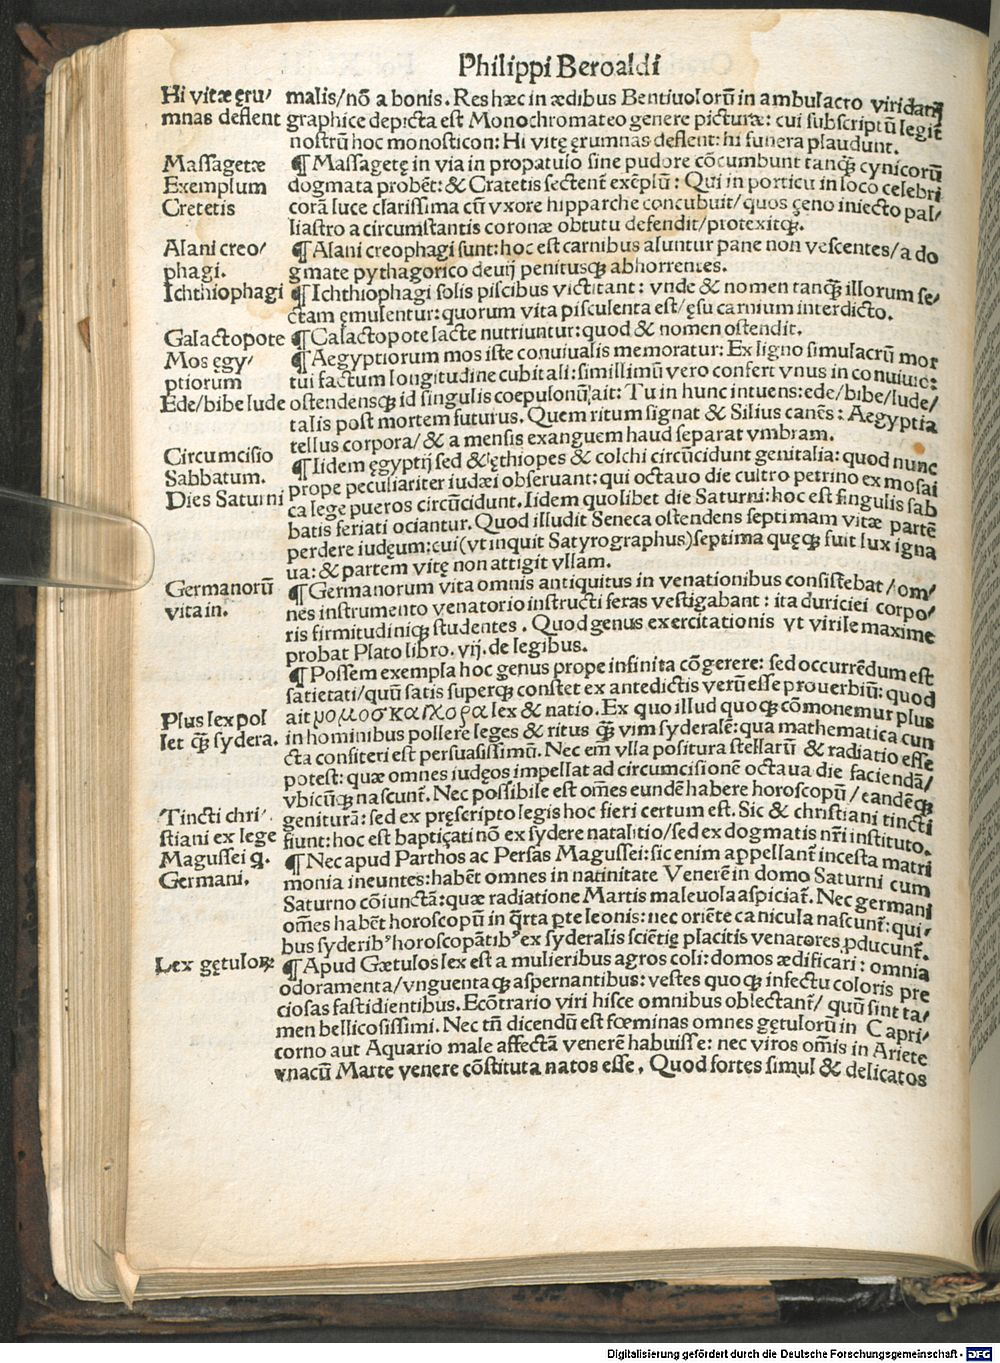 Philippi Beroaldi
Hi vitæ ęru/
mnas deflent
malis/nō a bonis. Res hæc in ædibus Bentiuolorū in ambulacro viridarij
graphice depicta est Monochromateo genere picturæ: cui subscriptū legit̄
nostrū hoc monosticon: Hi vitę ęrumnas deflent: hi funera plaudunt.
Massagetæ
Exemplum
Cretetis
¶ Massagetę in via in propatulo sine pudore cōcumbunt tanq̄ȝ cynicorū
dogmata probēt: & Cratetis sectent̄ exēplū: Qui in porticu in loco celebri
corā luce clarissima cū vxore hipparche concubuit/quos çeno iniecto pal/
liastro a circumstantis coronæ obtutu defendit/protexitqȝ.
Alani creo/
phagi.
¶ Alani creophagi sunt: hoc est carnibus asuntur pane non vescentes/a do
gmate pythagorico deuij penitusqȝ abhorrentes.
Ichthiophagi
¶ Ichthiophagi solis piscibus victitant: vnde & nomen tanq̄ȝ illorum se/
ctam ęmulentur: quorum vita pisculenta est/ęsu carnium interdicto.
Galactopote
¶ Galactopote lacte nutriuntur: quod & nomen ostendit.
Mos ęgy/
ptiorum
Ede/bibe lude
¶ Aegyptiorum mos iste conuiualis memoratur: Ex ligno simulacrū mor
tui factum longitudine cubitali: simillimū vero confert vnus in conuiuio:
ostendensqȝ id singulis coepulonū ait: Tu in hunc intuens: ede/bibe/lude/
talis post mortem futurus. Quem ritum signat & Silius canēs: Aegyptia
tellus corpora/& a mensis exanguem haud separat vmbram.
Circumcisio
Sabbatum.
Dies Saturni
¶ Iidem ęgyptij sed & ęthiopes & colchi circūcidunt genitalia: quod nunc
prope peculiariter iudæi obseruant: qui octauo die cultro petrino ex mosai
ca lege pueros circūcidunt. Iidem quolibet die Saturni: hoc est singulis sab
batis feriati ociantur. Quod illudit Seneca ostendens septimam vitæ partē
perdere iudęum: cui (vt inquit Satyrographus) septima quęqȝ fuit lux igna
ua: & partem vitę non attigit vllam.
Germanorū
vita in.
¶ Germanorum vita omnis antiquitus in venationibus consistebat/om/
nes instrumento venatorio instructi feras vestigabant: ita duriciei corpo/
ris firmitudiniqȝ studentes. Quod genus exercitationis vt virile maxime
probat Plato libro. vij. de legibus.
¶ Possem exempla hoc genus prope infinita cōgerere: sed occurrēdum est
satietati/quū satis superqȝ constet ex antedictis verū esse prouerbiū: quod
Plus lex pol
let q̄ȝ sydera.
ait νομοσ και χορα lex & natio. Ex quo illud quoqȝ cōmonemur plus
in hominibus pollere leges & ritus q̄ȝ vim syderalē: qua mathematica cun
cta consiteri est persuasissimū. Nec em̄ vlla positura stellarū & radiatio esse
potest: quæ omnes iudęos impellat ad circumcisionē octaua die faciendā/
vbicūqȝ nascunt̄. Nec possibile est om̄es eundē habere horoscopū/eandēqȝ
Tincti chri/
stiani ex lege
geniturā: sed ex pręscripto legis hoc fieri certum est. Sic & christiani tincti
fiunt: hoc est baptiçati nō ex sydere natalitio/sed ex dogmatis nr̄i instituto.
Magussei q.
Germani.
¶ Nec apud Parthos ac Persas Magussei: sic enim appellant̄ incesta matri
monia ineuntes: habēt omnes in natiuitate Venerē in domo Saturni cum
Saturno cōiunctā: quæ radiatione Martis maleuola aspiciat̄. Nec germani
om̄es habēt horoscopū in q̄rta pte leonis: nec oriēte canicula nascunt̄: qui/
bus syderibꝰ horoscopātibꝰ ex syderalis sciētię placitis venatores ꝓducunt̄.
Lex gętuloꝝ
¶ Apud Gætulos lex est a mulieribus agros coli: domos ædificari: omnia
odoramenta/vnguentaqȝ aspernantibus: vestes quoqȝ infectu coloris pre
ciosas fastidientibus. Ecōtrario viri hisce omnibus oblectant̄/ quū sint ta/
men bellicosissimi. Nec tn̄ dicendū est fœminas omnes gętulorū in Capri/
corno aut Aquario male affectā venerē habuisse: nec viros om̄is in Ariete
vnacū Marte venere cōstituta natos esse. Quod fortes simul & delicatos
Digitalisierung gefördert durch die Deutsche Forschungsgemeinschaft - DFG